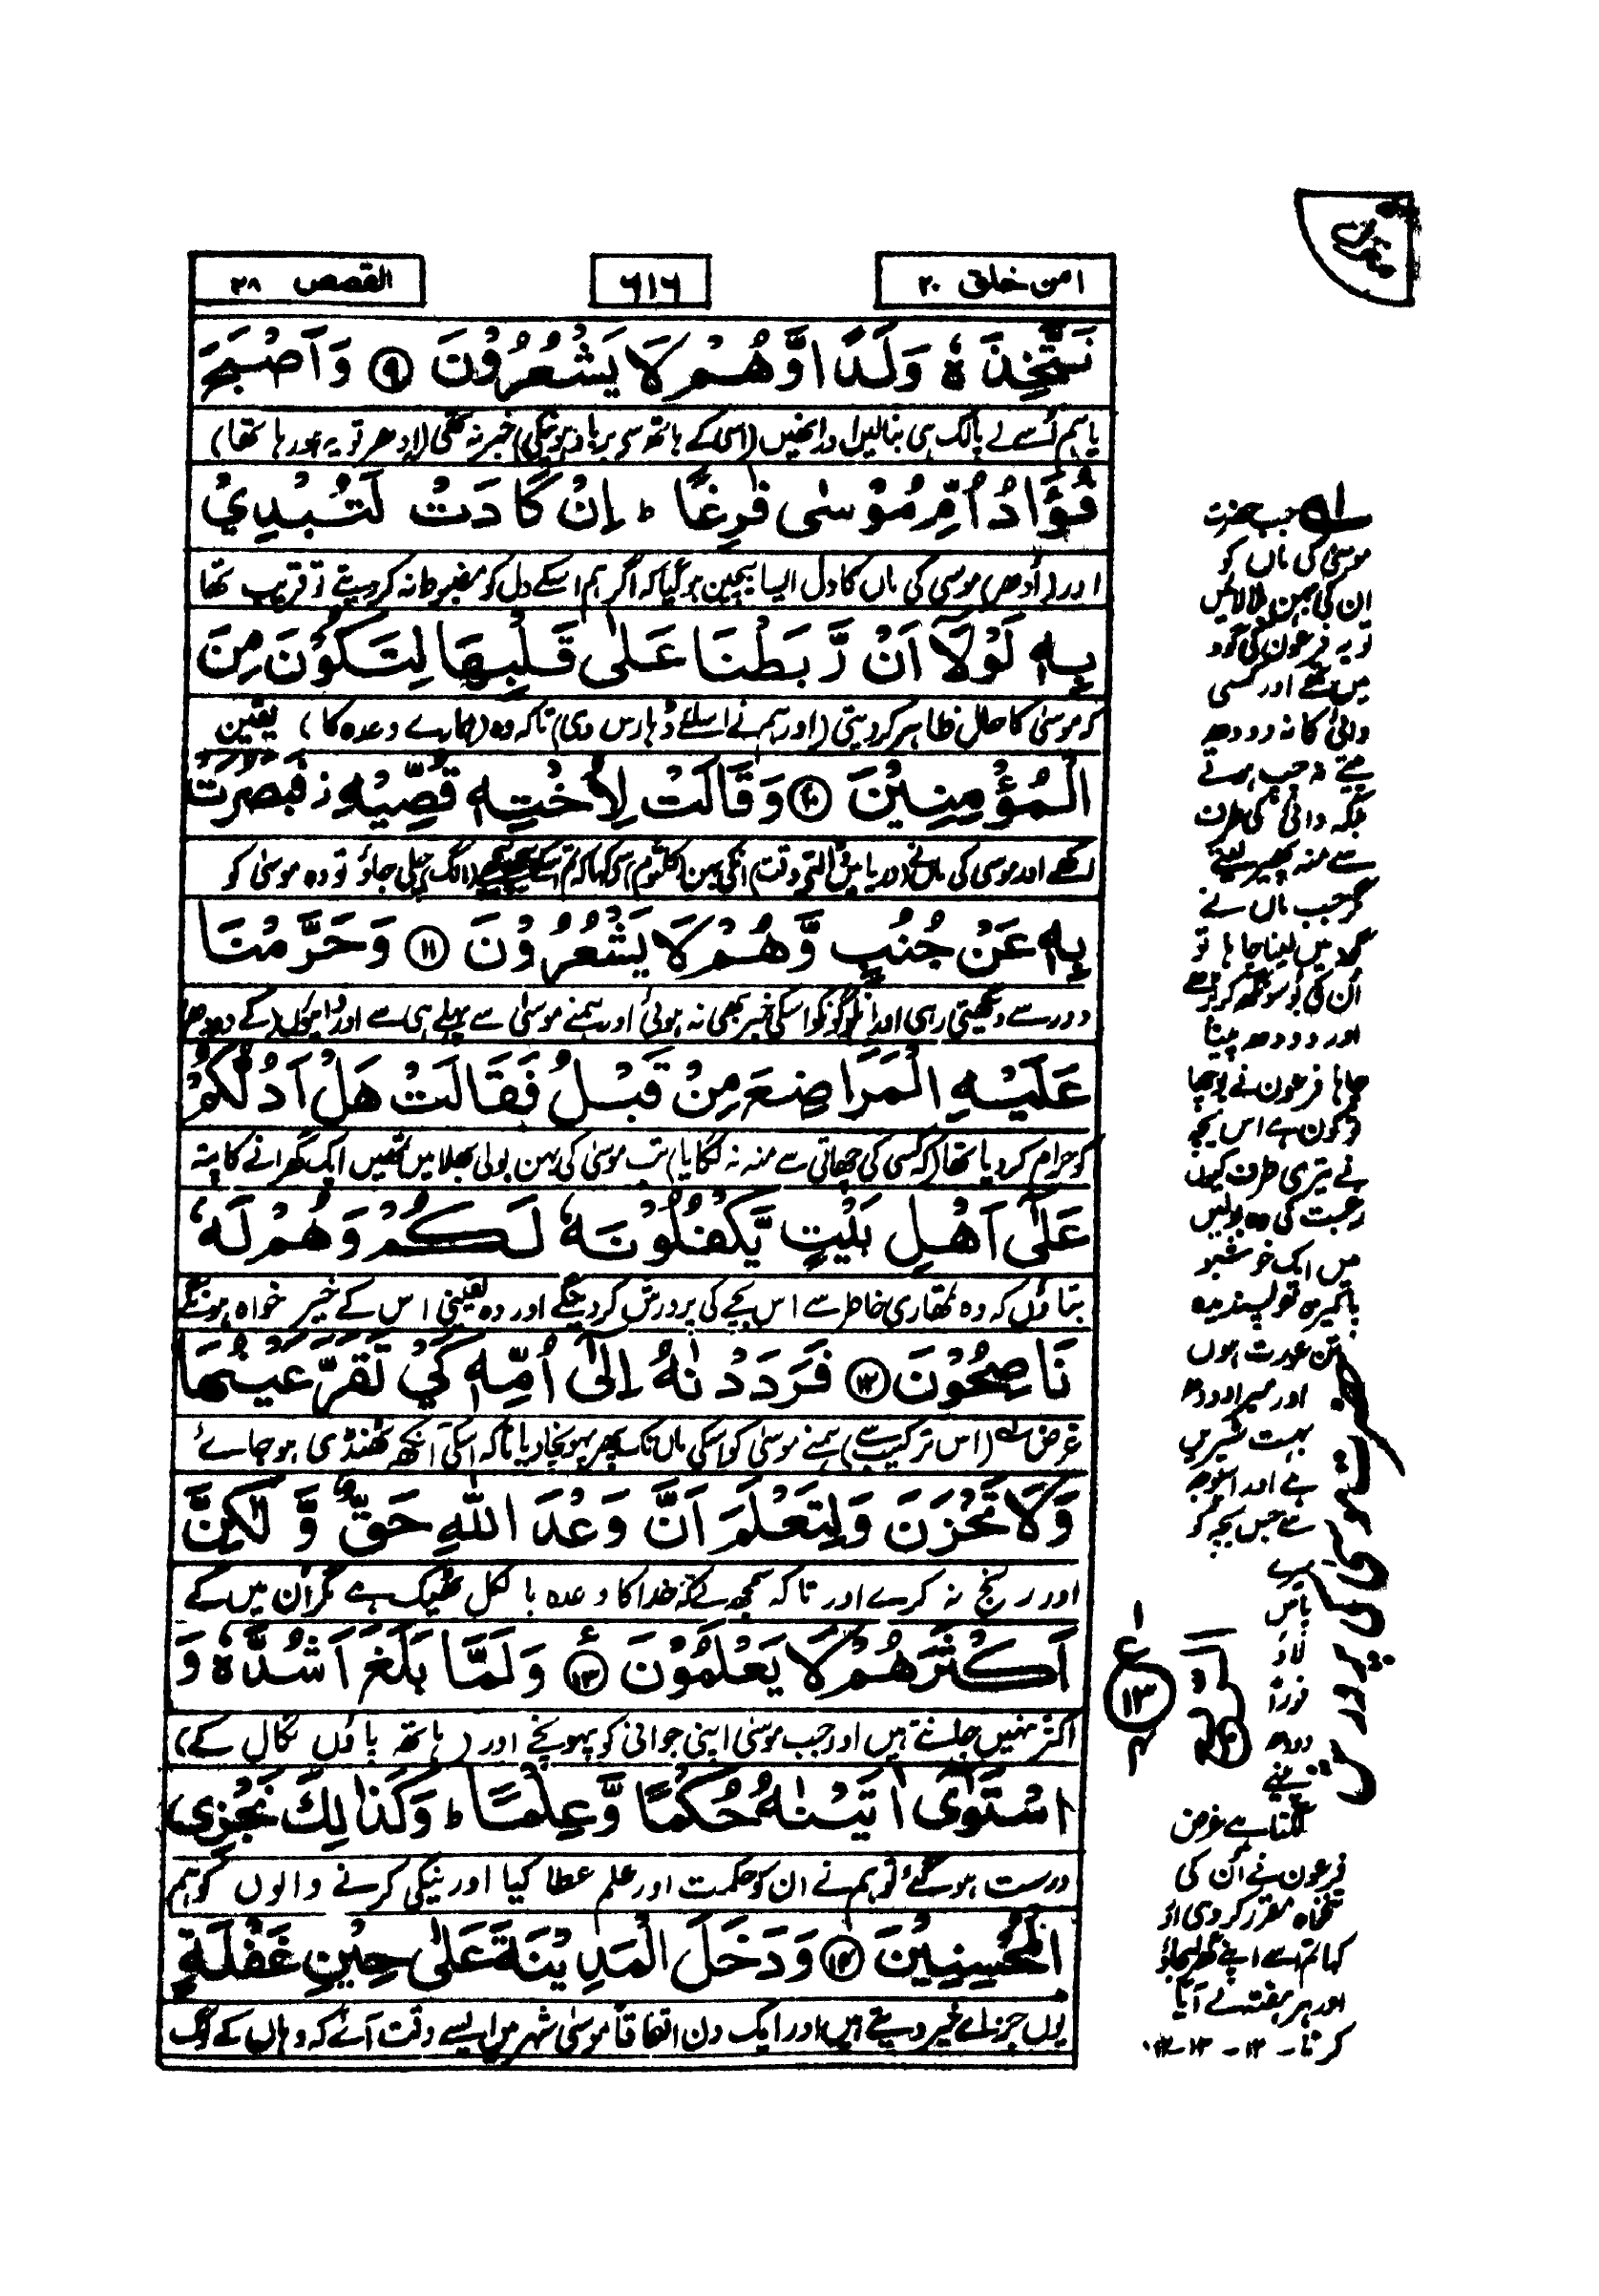 امن خلق ٢٠
٦١٦
القصص ٢٨
نَتَّخِذَهٗ وَلَدًا وَّهُمْ لَا يَشْعُرُوْنَ ۹ وَاَصْبَحَ
یا ہم اُسے لے پالک ہی بنا لیں اور انھیں (اسی کے ہاتھ سے برباد ہونیکی) خبر نہ تھی (ادھر تو یہ ہو رہا تھا)
فُؤَادُ اُمِّ مُوْسٰى فٰرِغًا ؕ اِنْ كَادَتْ لَتُبْدِيْ
اور (اُدھر) موسیٰ کی ماں کا دل ایسا بیچین ہو گیا کہ اگر ہم اسکے دل کو مضبوط نہ کر دیتے تو قریب تھا
بِهٖ لَوْلَآ اَنْ رَّبَطْنَا عَلٰى قَلْبِهَا لِتَكُوْنَ مِنَ
کہ موسیٰ کا حال ظاہر کر دیتی (اور ہم نے اسلئے ڈہارس دی) تاکہ وہ (ہمارے وعدہ کا) یقین
الْمُؤْمِنِيْنَ ۱۰ وَقَالَتْ لِاُخْتِهٖ قُصِّيْهِ ز فَبَصُرَتْ
رکھے اور موسیٰ کی ماں نے (دریا میں ڈالتے وقت) انکی بہن (کلثوم) سے کہا کہ تم اسکے پیچھے پیچھے (الگ) چلی جاؤ تو وہ موسیٰ کو
بِهٖ عَنْ جُنُبٍ وَّهُمْ لَا يَشْعُرُوْنَ ۱۱ وَحَرَّمْنَا
دور سے دیکھتی رہی اور ان لوگونکو اسکی خبر بھی نہ ہوئی اور ہمنے موسیٰ سے پہلے ہی سے اور دائیوں (کے دودھ)
عَلَيْهِ الْمَرَاضِعَ مِنْ قَبْلُ فَقَالَتْ هَلْ اَدُلُّكُمْ
کو حرام کر دیا تھا (کہ کسی کی چھاتی سے منہ نہ لگایا) تب موسیٰ کی بہن بولی بھلا میں تمھیں ایک گھرانے کا پتہ
عَلٰٓى اَهْلِ بَيْتٍ يَّكْفُلُوْنَهٗ لَكُمْ وَهُمْ لَهٗ
بتاؤں کہ وہ تمھاری خاطر سے اس بچے کی پرورش کر دینگے اور وہ یقینی اس کے خیر خواہ ہونگے
نَاصِحُوْنَ ۱۲ فَرَدَدْنٰهُ اِلٰٓى اُمِّهٖ كَيْ تَقَرَّ عَيْنُهَا
غرض (اس ترکیب سے) ہمنے موسیٰ کو اسکی ماں تک پھر پہونچا دیا تاکہ اسکی آنکھ ٹھنڈی ہو جائے
وَلَا تَحْزَنَ وَلِتَعْلَمَ اَنَّ وَعْدَ اللّٰهِ حَقٌّ وَّلٰكِنَّ
اور رنج نہ کرے اور تاکہ سمجھ لے کہ خدا کا وعدہ بالکل ٹھیک ہے مگر ان میں کے
اَكْثَرَهُمْ لَا يَعْلَمُوْنَ ۱۳ ع وَلَمَّا بَلَغَ اَشُدَّهٗ وَ
اکثر نہیں جانتے ہیں اور جب موسیٰ اپنی جوانی کو پہونچے اور (ہاتھ پاؤں نکال کے)
اسْتَوٰٓى اٰتَيْنٰهُ حُكْمًا وَّعِلْمًا ؕ وَكَذٰلِكَ نَجْزِى
درست ہو گئے تو ہم نے ان کو حکمت اور علم عطا کیا اور نیکی کرنے والوں کو ہم
الْمُحْسِنِيْنَ ۱۴ وَدَخَلَ الْمَدِيْنَةَ عَلٰى حِيْنِ غَفْلَةٍ
یوں جزاے خیر دیتے ہیں اور ایک دن اتفاقاً موسیٰ شہر میں ایسے وقت آئے کہ وہاں کے لوگ
جب حضرت
موسیٰ کی ماں کو
ان کی بہن بلا لائیں
تو یہ فرعون کی گود
میں تھے اور کسی
دائی کا نہ دودھ
پیتے نہ چپ ہوتے
بلکہ دائی کی طرف
سے منہ پھیر لیتے
مگر جب ماں نے
گود میں لینا چاہا تو
ان کی بو سونگھ کر بڑھے
اور دودھ پینا
چاہا فرعون نے پوچھا
تو کون ہے اس بچہ
نے تیری طرف کیوں
رغبت کی وہ بولیں
میں ایک خوشبو
پاکیزہ تو پسندیدہ
تن عورت ہوں
اور میرا دودھ
بہت شیریں
ہے اور اسیوجہ
سے جس بچہ کو
میرے
پاس
لاؤ
فوراً
دودھ
پینے
لگتا ہے غرض
فرعون نے ان کی
تنخواہ مقرر کر دی اور
کہا تم اسے اپنے گھر لیجاؤ
اور ہر ہفتہ لے آیا
کرنا۔ ۱۲ - ۱۳ - ۱۲
ع
۱۳
۴